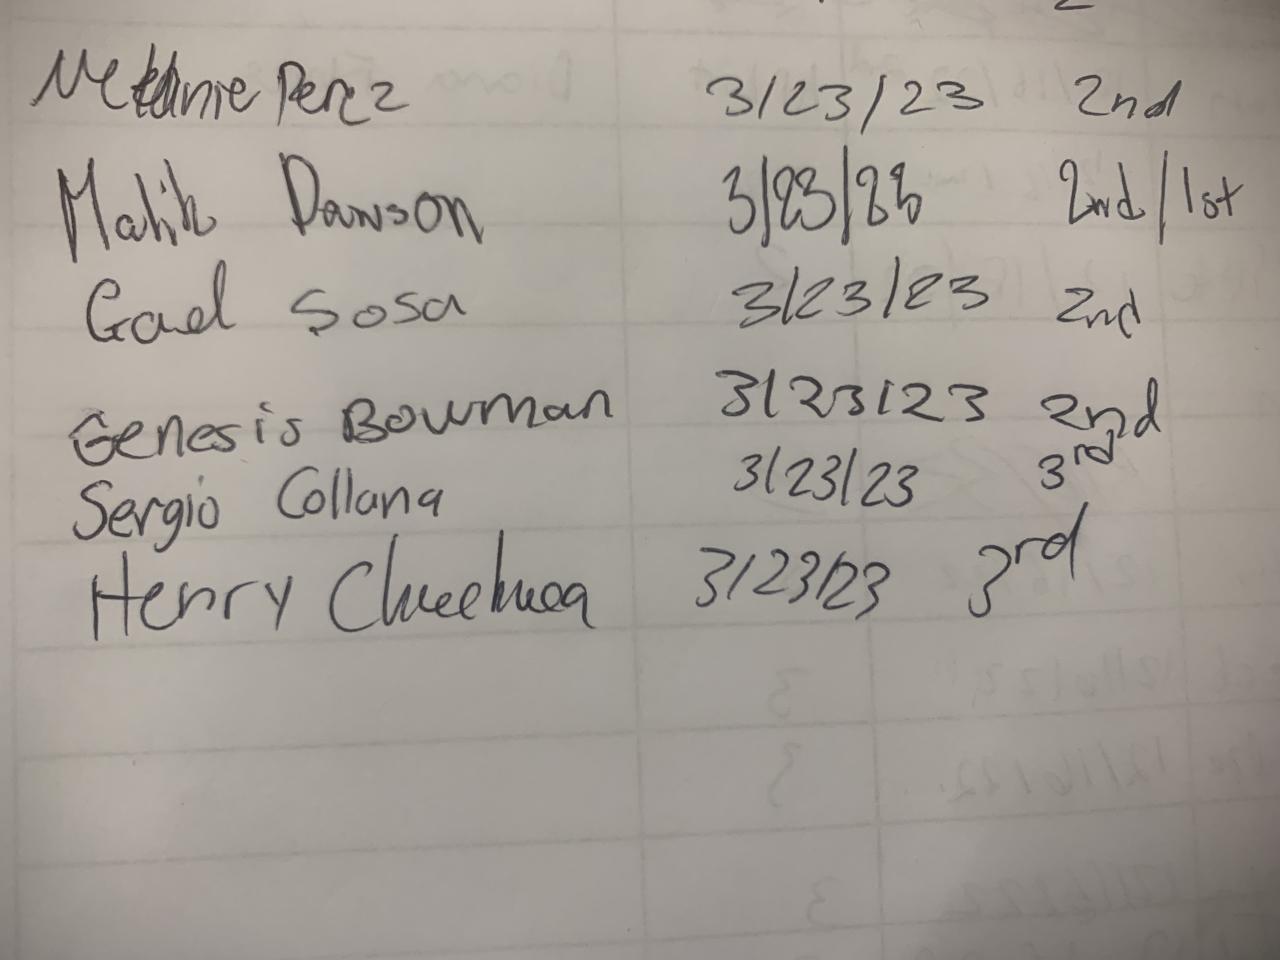 Perez 3/23/23 2nd
Malik Dawson 3/23/23 2nd/1st
Gael Sosa 3/23/23 2nd
Genesis Bowman 3/23/23 2nd
Sergio Collana 3/23/23 3rd
Henry 3/23/23 3rd